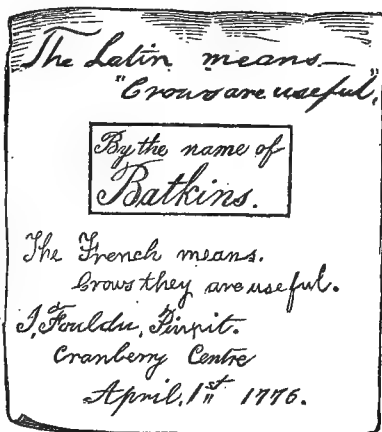 The Latin means—
"Crows are useful,"
By the name of
Batkins.
The French means.
Crows they are useful.
I, Fouldu, Pinxit.
Cranberry Centre
April, 1st 1776.